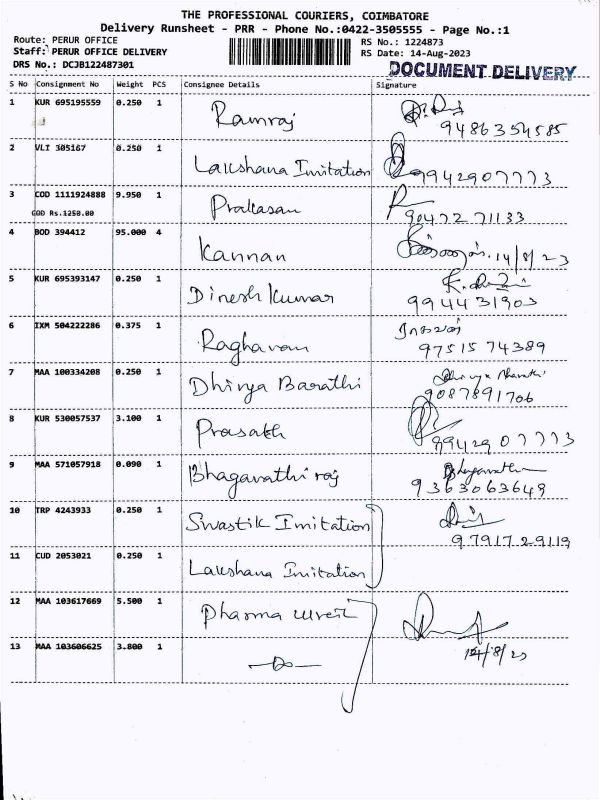 THE PROFESSIONAL COURIERS, COIMBATORE
Delivery Runsheet - PRR - Phone No.:0422-3505555 - Page No.:1
Route: PERUR OFFICE
RS No.: 1224873
Staff: PERUR OFFICE DELIVERY
RS Date: 14-Aug-2023
DRS No.: DCJB122487301
DOCUMENT DELIVERY
S No Consignment No Weight PCS Consignee Details Signature
1 KUR 695195559 0.250 1 Ramraj
9486354585
2 VLI 305167 0.250 1 Lakshana Imitation
9942907773
3 COD 1111924888 9.950 1 Prakasan
COD Rs.1250.00
90472 71133
4 BOD 394412 95.000 4 Kannan
14/8/23
5 KUR 695393147 0.250 1 Dinesh Kumar
9944431903
6 IXM 504222286 0.375 1 Raghavan ராகவன்
97515 74389
7 MAA 100334208 0.250 1 Dhivya Barathi
9087891706
8 KUR 530057537 3.100 1 Prasath
9942907773
9 MAA 571057918 0.090 1 Bhagavathi raj
9363063649
10 TRP 4243933 0.250 1 Swastik Imitation
97917 29119
11 CUD 2053021 0.250 1 Lakshana Imitation
12 MAA 103617669 5.500 1 Pharma
14/8/23
13 MAA 103606625 3.800 1 -Do-